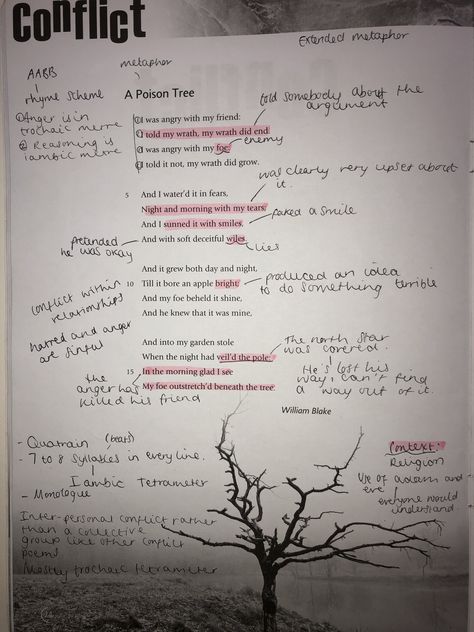 Conflict
Extended metaphor
metaphor
AABB
rhyme scheme
A Poison Tree
told somebody about the
argument
① Anger is in
trochaic metre
② Reasoning is
iambic metre
I was angry with my friend:
I told my wrath, my wrath did end.
I was angry with my foe:
enemy
I told it not, my wrath did grow.
was clearly very upset about
it.
5 And I water'd it in fears,
Night and morning with my tears;
And I sunned it with smiles,
faked a smile
And with soft deceitful wiles.
pretended
he was okay
lies
And it grew both day and night,
10 Till it bore an apple bright;
produced an idea
to do something terrible
And my foe beheld it shine,
And he knew that it was mine,
conflict within
relationships
hatred and anger
are sinful
And into my garden stole
When the night had veil'd the pole:
The north star
was covered.
15 In the morning glad I see
My foe outstretch'd beneath the tree.
He's lost his
way, can't find
a way out of it.
the
anger has
killed his friend
William Blake
- Quatrain (beats)
- 7 to 8 syllables in every line.
Iambic Tetrameter
- Monologue
Inter-personal conflict rather
than a collective
group like other conflict
poems
Mostly trochaic tetrameter
Context:
Religion
Use of adam and
eve
everyone would
understand.